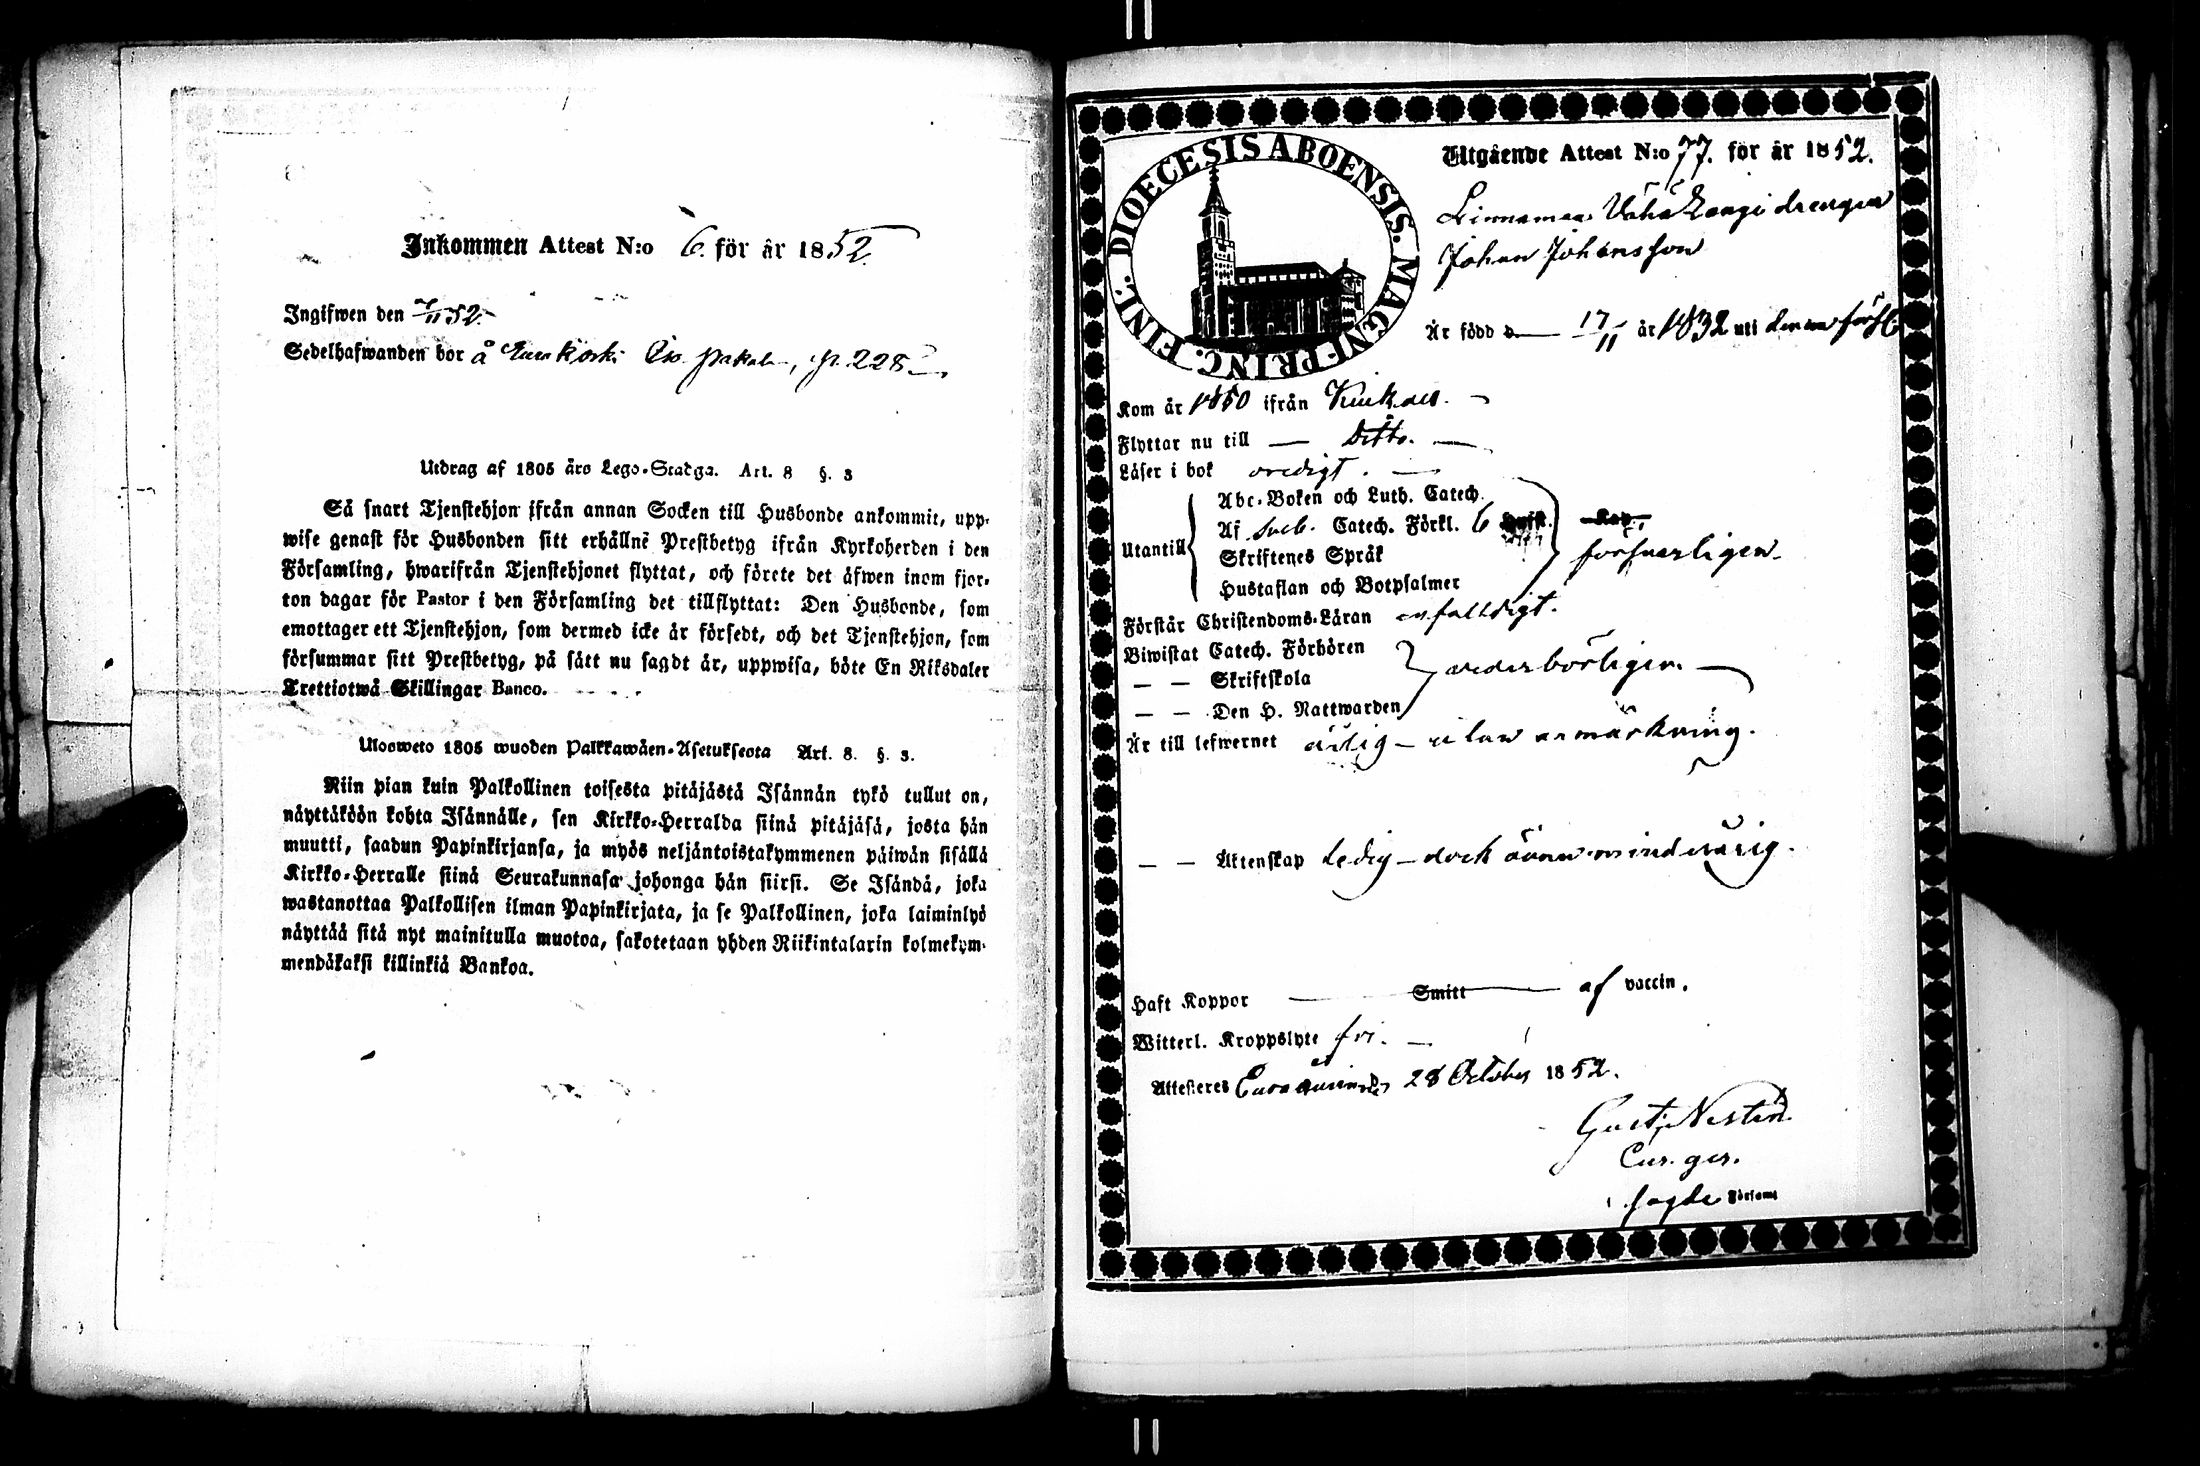 Inkommen Attest N:o 6. för år 1852.
Ingifwen den 7/11 52.
Sedelhafwanden bor å Eurakoski p. 228
Utdrag af 1805 års Lego-Stadga. Art. 8 §. 3
Så snart Tjenstehjon ifrån annan Socken till Husbonde ankommit, upp-
wise genast för Husbonden sitt erhållne Prestbetyg ifrån Kyrkoherden i den
Församling, hwarifrån Tjenstehjonet flyttat, och förete det äfwen inom fjor-
ton dagar för Pastor i den Församling det tillflyttat: Den Husbonde, som
emottager ett Tjenstehjon, som dermed icke är försedt, och det Tjenstehjon, som
försummar sitt Prestbetyg, på sätt nu sagdt är, uppwisa, böte En Riksdaler
Trettiotwå Skillingar Banco.
Ulosweto 1805 wuoden Palkkawäen-Asetuksesta Art. 8. §. 3.
Niin pian kuin Palkollinen toisesta pitäjästä Isännän tykö tullut on,
näyttäköön kohta Isännälle, sen Kirkko-Herralda siinä pitäjäsä, josta hän
muutti, saadun Papinkirjansa, ja myös neljäntoistakymmenen päiwän sisällä
Kirkko-Herralle siinä Seurakunnasa johonga hän siirsi. Se Isändä, joka
wastanottaa Palkollisen ilman Papinkirjata, ja se Palkollinen, joka laiminlyö
näyttää sitä nyt mainitulla muotoa, sakotetaan yhden Riikintalarin kolmekym-
mendäkaksi killinkiä Bankoa.
DIOECESIS ABOENSIS. MAGNI PRINC. FINL.
Utgående Attest N:o 77. för år 1852.
Linnamaa Vähä Langi drengen
Johan Johansson
Är född d 17/11 år 1832 uti denna förs:
Kom år 1850 ifrån Kiukais.
Flyttar nu till Ditto.
Läser i bok oredigt.
Utantill
Abc-Boken och Luth. Catech.
Af Sveb. Catech. Förkl. 6
Skriftenes Språk
försvarligen.
Hustaflan och Botpsalmer
Förstår Christendoms-Läran enfaldigt.
Biwistat Catech. Förhören
— — Skriftskola
vederbörligen.
— — Den H. Nattwarden
Är till lefwernet ärlig - utan anmärkning.
— — Äktenskap Ledig - dock ännu minderårig.
Haft Koppor Smitt af vaccin.
Witterl. Kroppslyte fri.
Attesteres Euraåminne 28 October 1852.
Gust. Nestén
Cur. ger.
sagde Församl